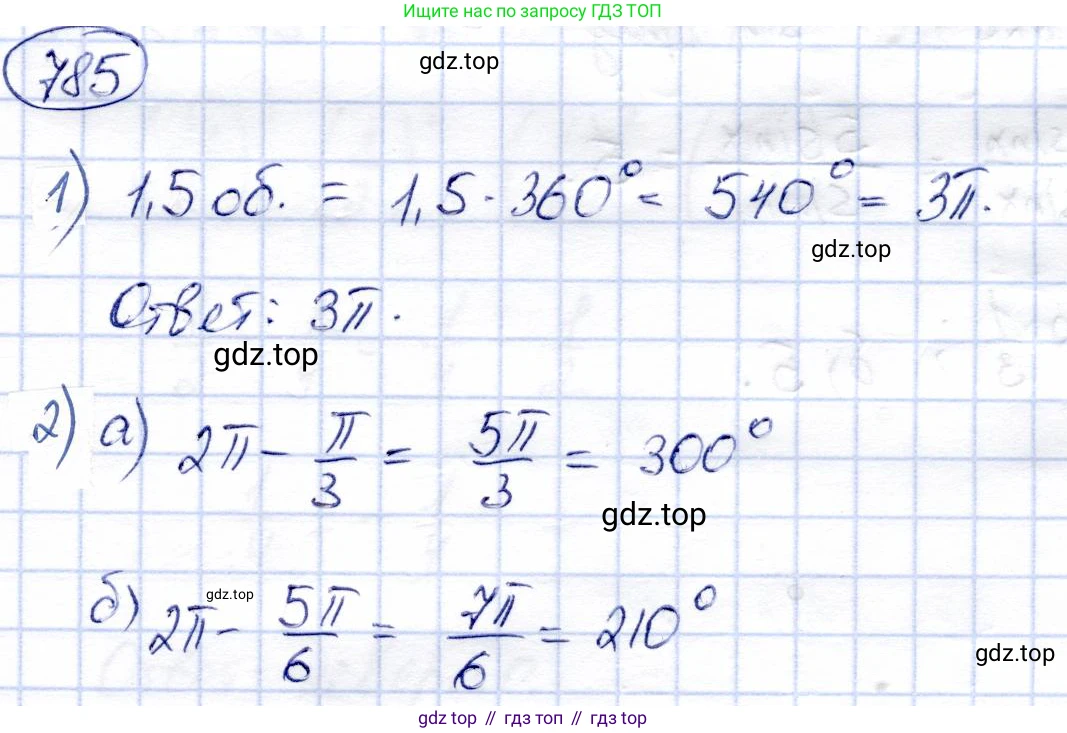 Ищите нас по запросу ГДЗ ТОП
785
gdz.top
1) 1,5 об. = 1,5 · 360° = 540° = 3π.
gdz.top
Ответ: 3π.
gdz.top
2) а) 2π - π/3 = 5π/3 = 300°
gdz.top
б) 2π - 5π/6 = 7π/6 = 210°
gdz.top
gdz.top
gdz top // гдз топ // gdz top